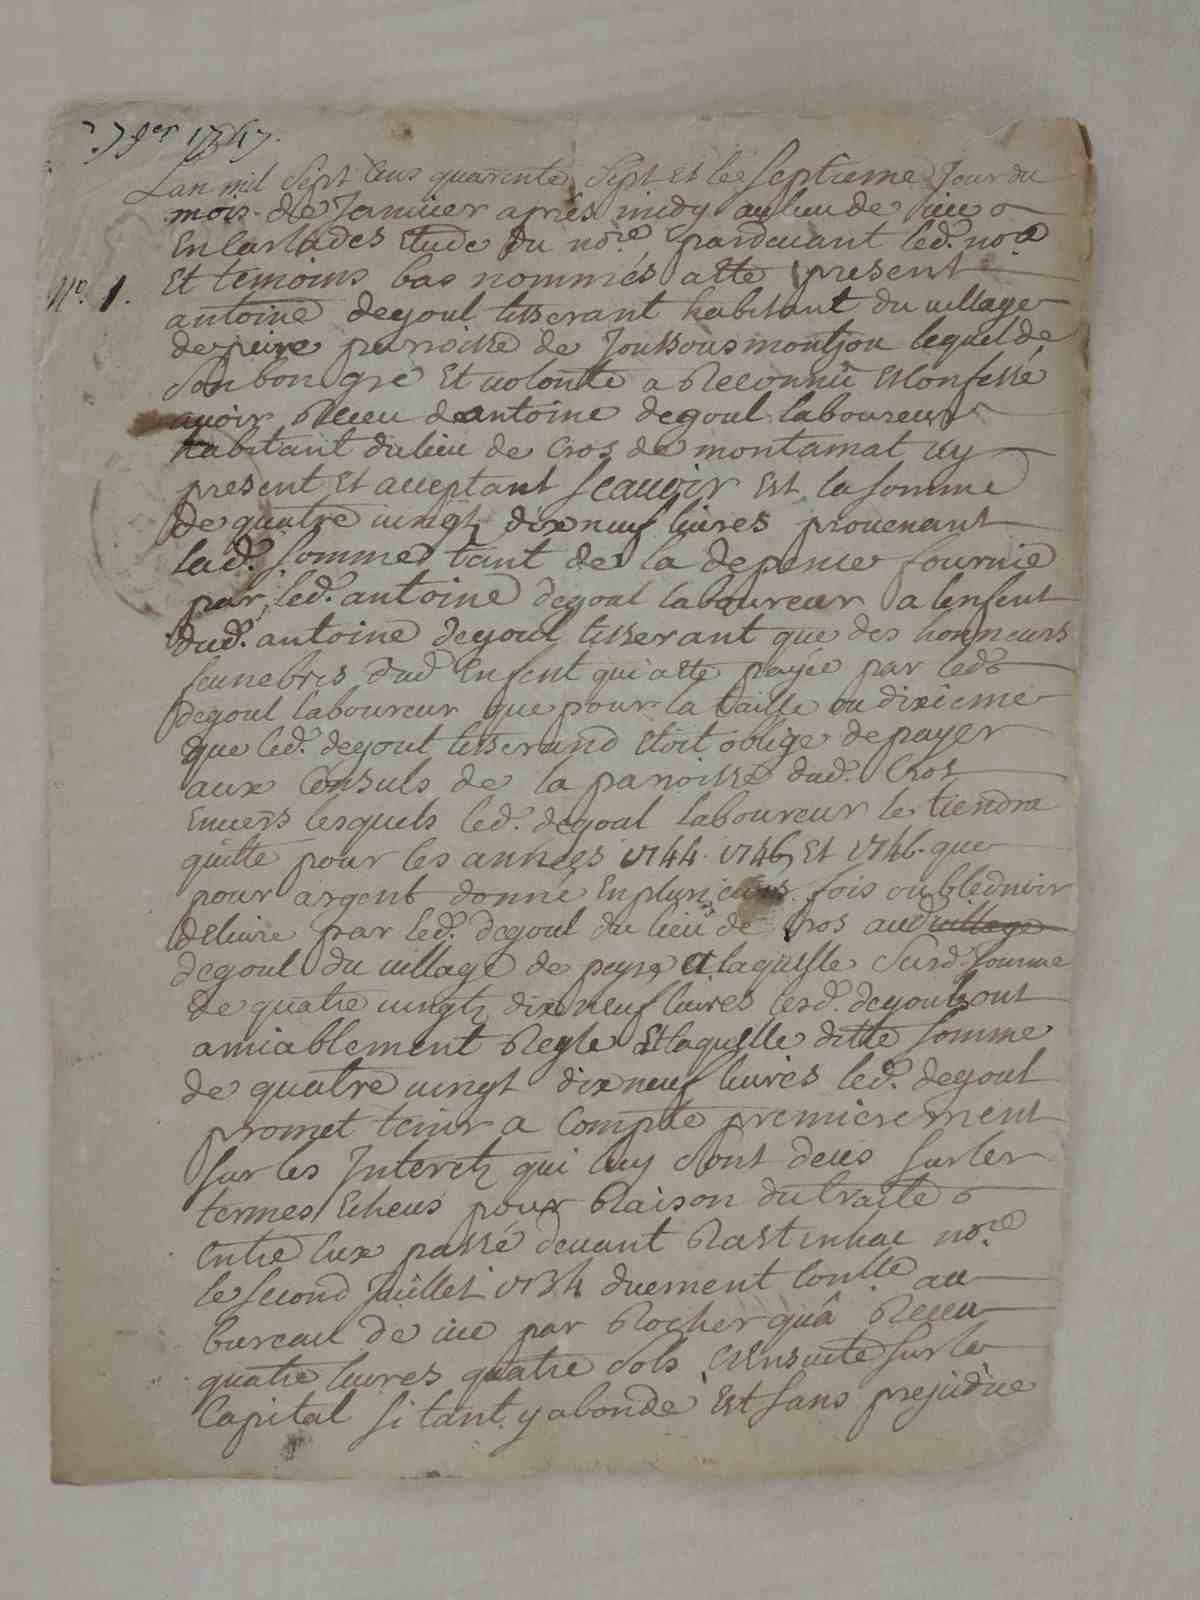 7 jer 1747.
Lan mil sept cens quarente sept et le septieme jour du
mois de Janvier apres midy au lieu de vic
En Carlades etude du nore. pardevant led. nore
No. 1.
Et temoins bas nommés a ete present
antoine degoul tisserant habitant du village
de peire parroisse de Joussous montjou lequel de
son bon gre et volonte a Reconnu et Confessé
avoir Receu de antoine degoul laboureur
habitant du lieu de Cros de montamat icy
present et acceptant scavoir est la somme
de quatre vingt dix neuf livres provenant
lad. somme tant de la depence fournie
par led. antoine degoul laboureur a lenfent
dud. antoine degoul tisserant que des honneurs
feunebres dud Enfent qui a ete payée par led
degoul laboureur que pour la taille ou dixieme
que led. degoul tisserand etoit oblige de payer
aux Consuls de la parroisse dud. Cros
Envers lesquels led. degoul laboureur le tiendra
quitte pour les années 1744. 1745 et 1746. que
pour argent donné En plusieurs fois ou bled noir
delivre par led. degoul du lieu de Cros aud village
degoul du village de peyre a laquelle susd. somme
de quatre vingt dix neuf livres lesd. degouls ont
amiablement Regle Et laquelle ditte somme
de quatre vingt dix neuf livres led. degoul
promet tenir a Compte premierement
sur les Interetz qui luy sont deus sur les
termes Echeus pour Raison du traite
Entre Eux passé devant Rastinhac nore
le second Juillet 1734 duement Conlle au
bureau de vic par Rocher qu'a Receu
quatre livres quatre sols Et Ensuite sur le
Capital si tant y abonde Et sans prejudice